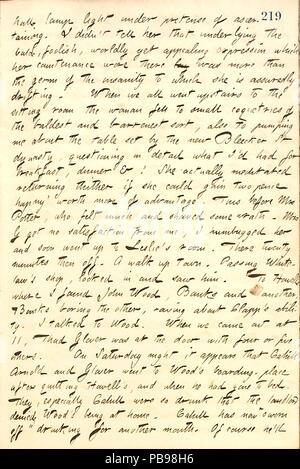 219
hall, lamp light under pretense of ascer-
taining. I didn't tell her that underlying the
bald, foolish, worldly yet appealing expression which
her countenance wore there was more than
the germ of the insanity to which she is assuredly
drifting. When we all went upstairs to the
sitting room the woman fell to small coquetries of
the baldest and barrenest sort, also to pumping
me about the table set by the new Bleecker St
dynasty, questioning in detail what I'd had for
breakfast, dinner &c! She actually meditated
returning thither if she could gain two pence
happeny worth more of advantage. This before Mrs
Potter, who felt much and showed some wrath. Mrs
J got no satisfaction from me, I humbugged her
and soon went up to Leslie's room. There twenty
minutes then off. A walk up town. Passing Whit-
law's shop, looked in and saw him. To Honell's
where I found John Wood, Banks and another,
Banks boring the other, raving about Clapp's abili-
ty. I talked to Wood. When we came out at
11, Thad Glover was at the door with four or five
others. On Saturday night it appears that Cahill
Arnold and Glover went to Wood's boarding place
after quitting Honell's, and when he had gone to bed.
They, especially Cahill were so drunk that the landlord
denied Wood's being at home. Cahill has now "sworn
off" drinking for another month. Of course he'll
alamy
PB98H6